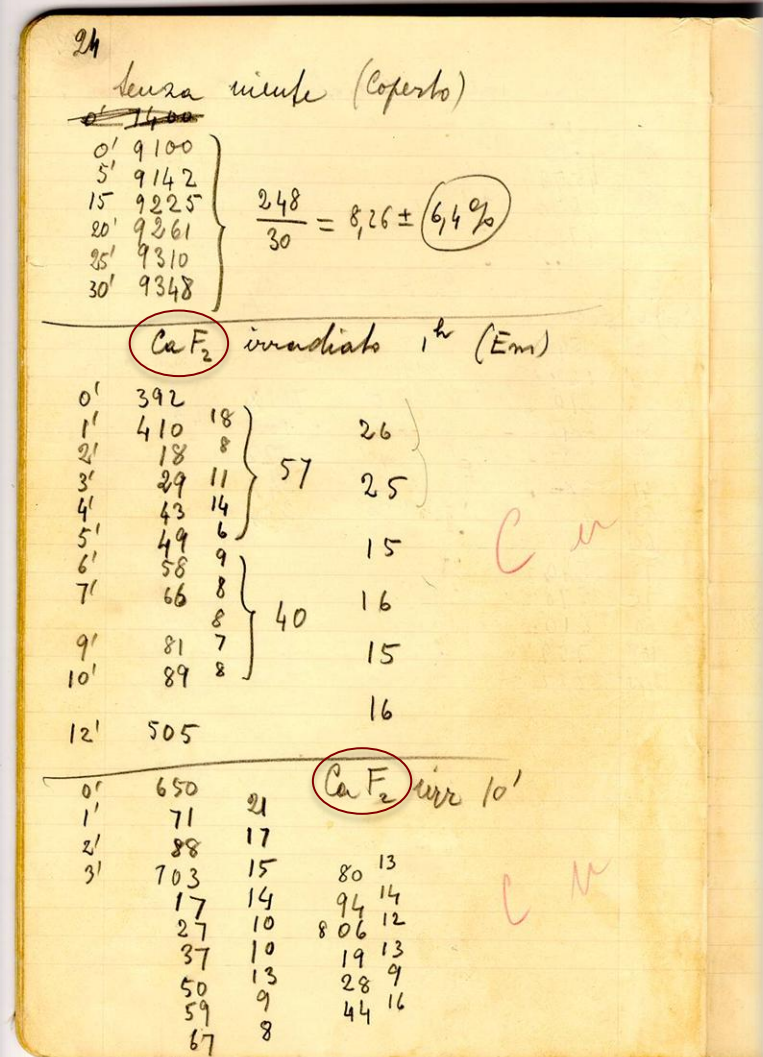 24
Senza niente (Coperto)
0' 1400
0' 9100
5' 9142
15 9225
20' 9261
25' 9310
30' 9348
248/30 = 8,26 ± 6,4%
CaF₂ irradiato 1ʰ (Em)
0' 392
1' 410 18
2' 18 8
3' 29 11
4' 43 14
5' 49 6
57
6' 58 9
7' 66 8
8
9' 81 7
10' 89 8
40
12' 505
26
25
15
16
15
16
C u
CaF₂ irr 10'
0' 650
1' 71 21
2' 88 17
3' 703 15
17 14
27 10
37 10
50 13
59 9
67 8
80 13
94 14
806 12
19 13
28 9
44 16
C u